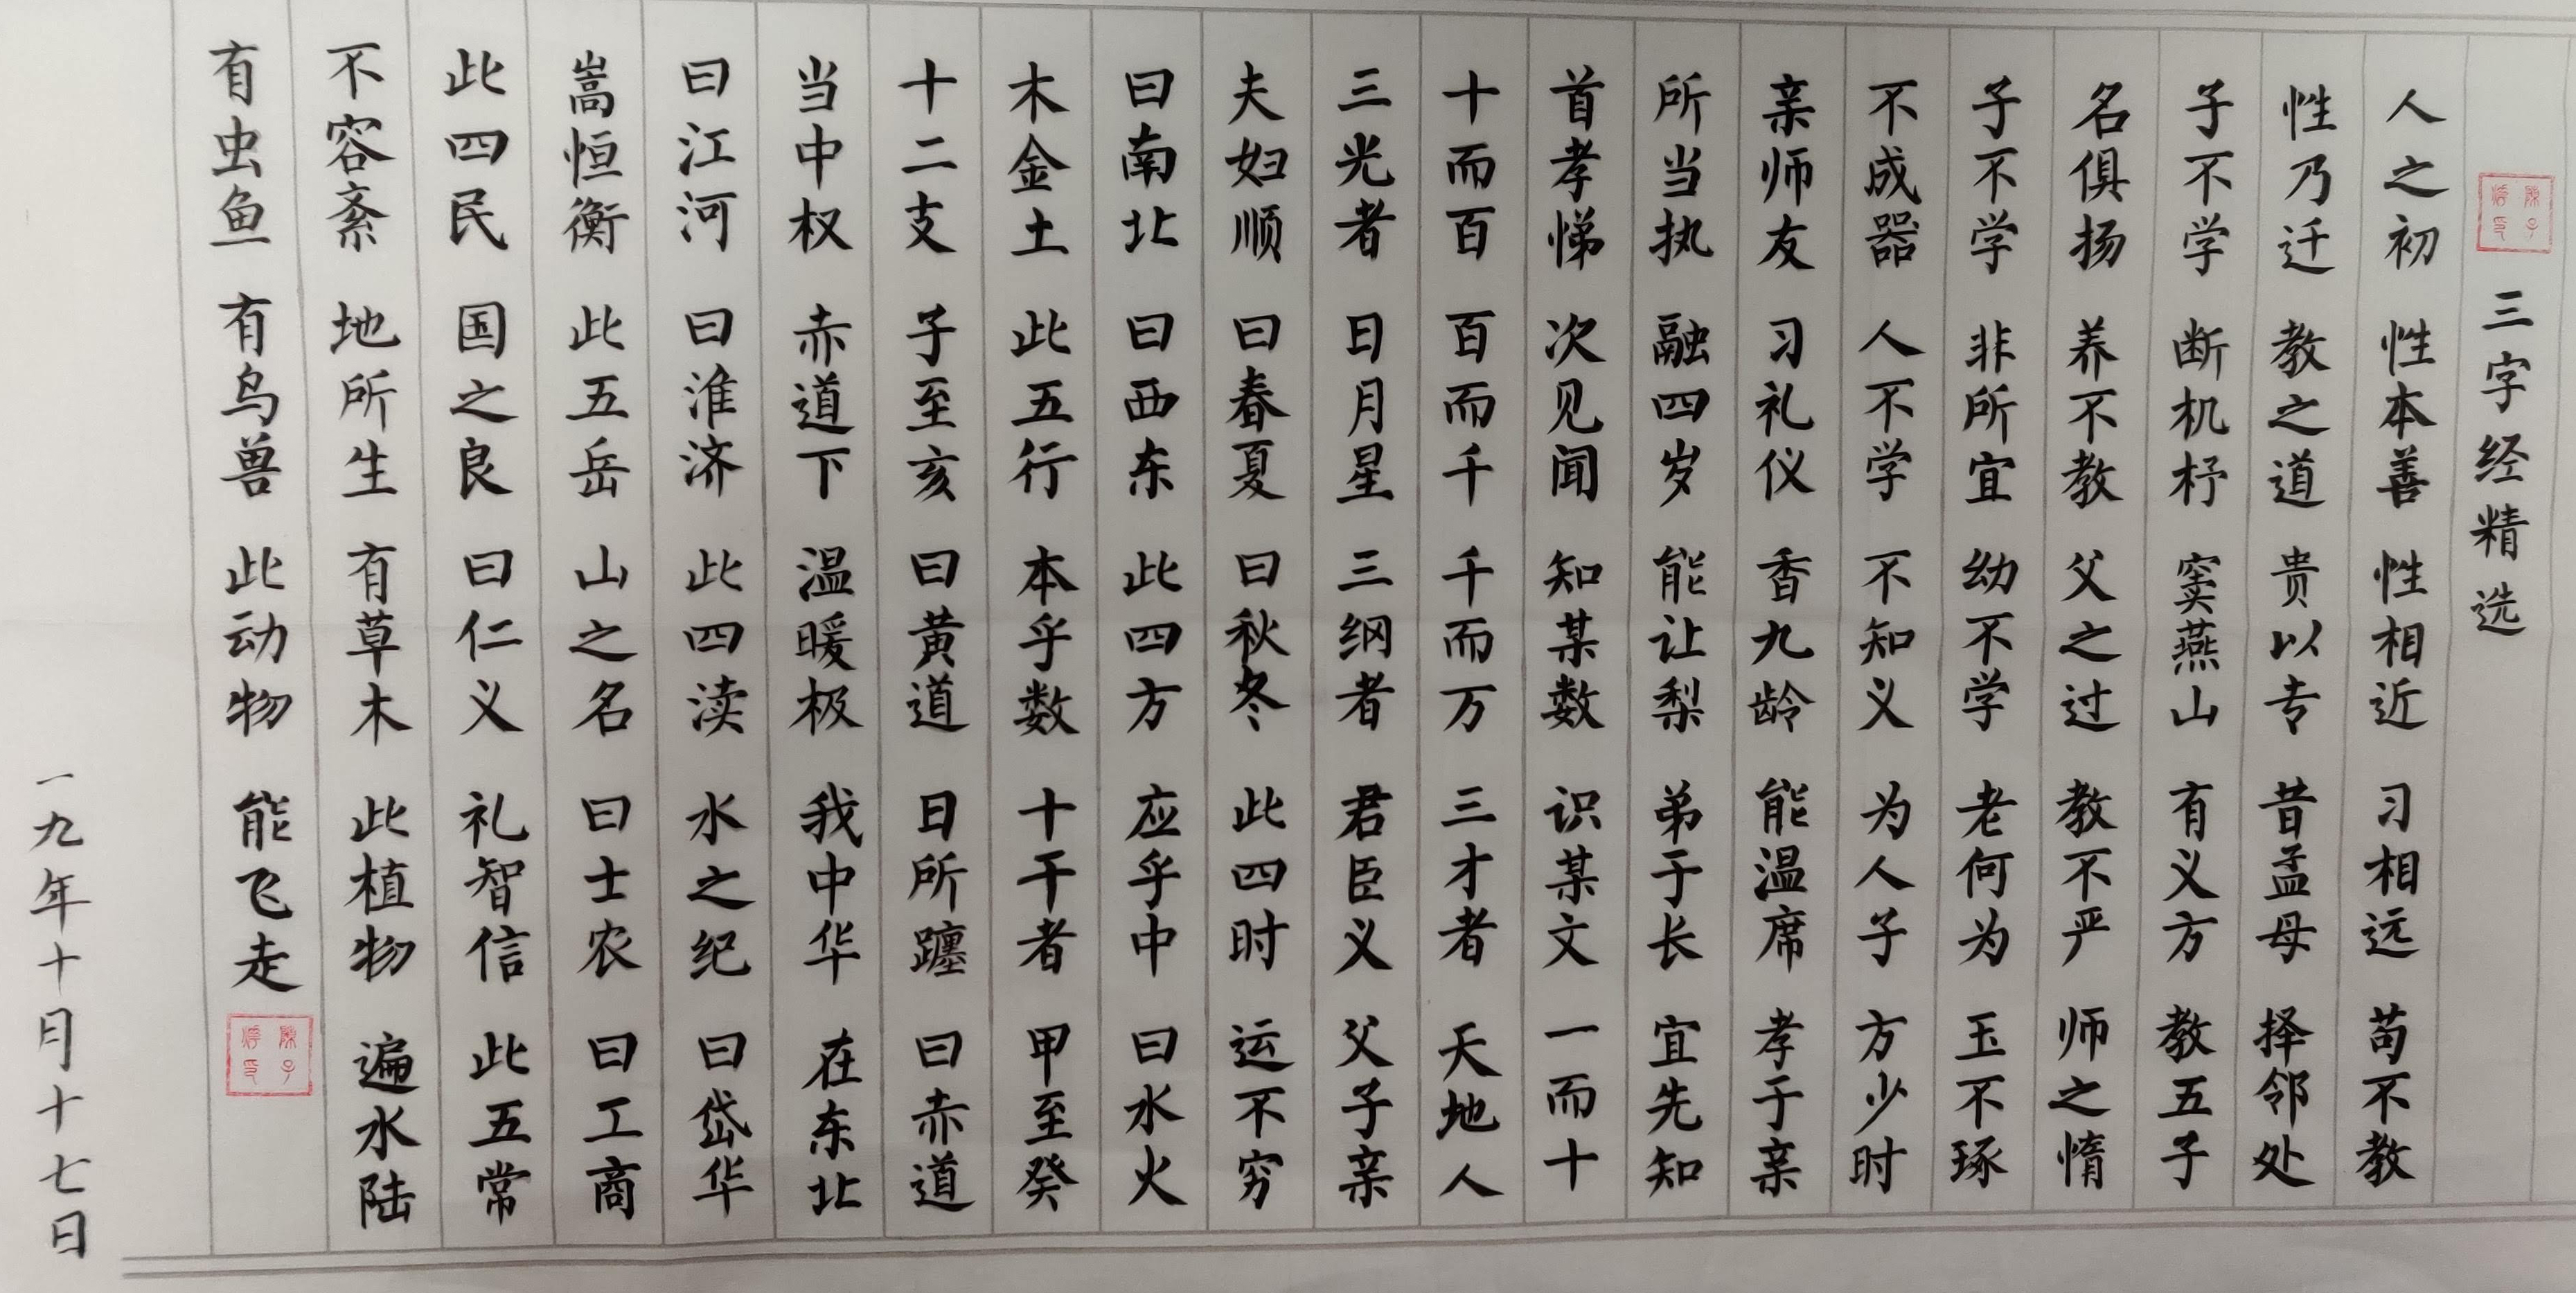 三字经精选
人之初 性本善 性相近 习相远 苟不教
性乃迁 教之道 贵以专 昔孟母 择邻处
子不学 断机杼 窦燕山 有义方 教五子
名俱扬 养不教 父之过 教不严 师之惰
子不学 非所宜 幼不学 老何为 玉不琢
不成器 人不学 不知义 为人子 方少时
亲师友 习礼仪 香九龄 能温席 孝于亲
所当执 融四岁 能让梨 弟于长 宜先知
首孝悌 次见闻 知某数 识某文 一而十
十而百 百而千 千而万 三才者 天地人
三光者 日月星 三纲者 君臣义 父子亲
夫妇顺 曰春夏 曰秋冬 此四时 运不穷
曰南北 曰西东 此四方 应乎中 曰水火
木金土 此五行 本乎数 十干者 甲至癸
十二支 子至亥 曰黄道 日所躔 曰赤道
当中权 赤道下 温暖极 我中华 在东北
曰江河 曰淮济 此四渎 水之纪 曰岱华
嵩恒衡 此五岳 山之名 曰士农 曰工商
此四民 国之良 曰仁义 礼智信 此五常
不容紊 地所生 有草木 此植物 遍水陆
有虫鱼 有鸟兽 此动物 能飞走
一九年十月十七日